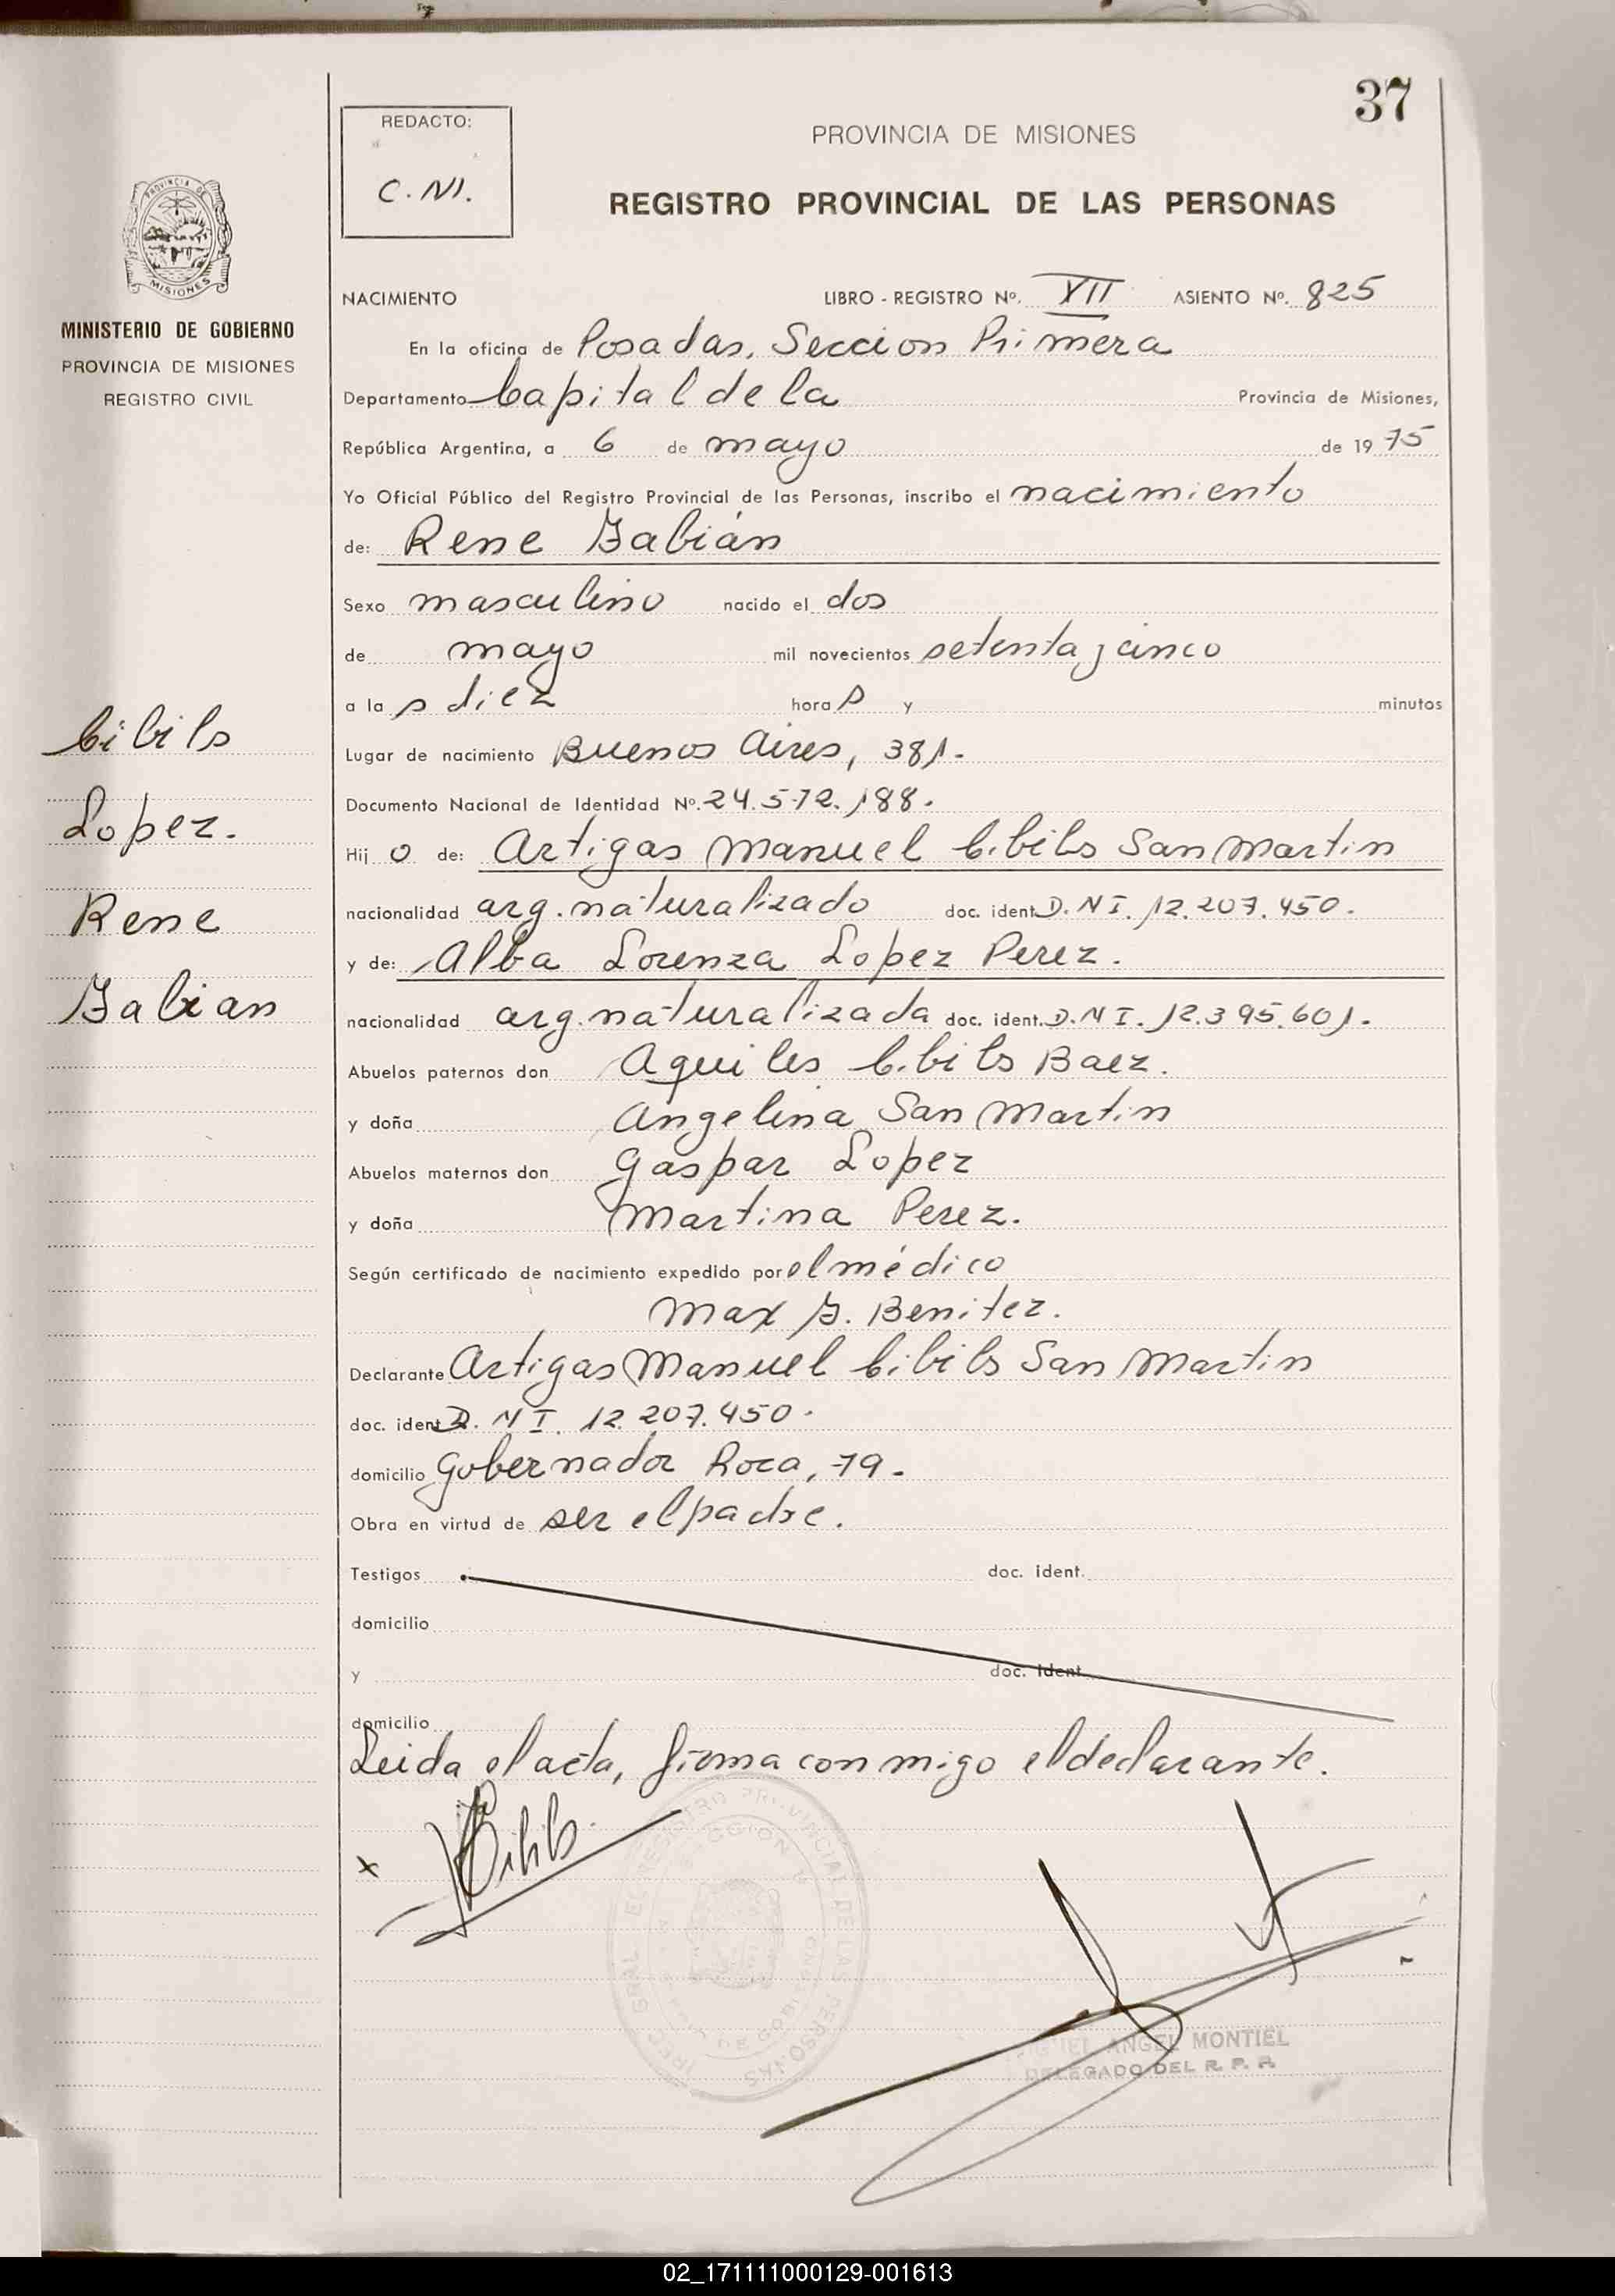 37
REDACTO:
C. N.
PROVINCIA DE MISIONES
REGISTRO PROVINCIAL DE LAS PERSONAS
PROVINCIA DE
MISIONES
MINISTERIO DE GOBIERNO
PROVINCIA DE MISIONES
REGISTRO CIVIL
NACIMIENTO LIBRO - REGISTRO Nº. XII ASIENTO Nº. 825
En la oficina de Posadas, Seccion Primera
Departamento Capital de la Provincia de Misiones,
República Argentina, a 6 de mayo de 1975
Yo Oficial Público del Registro Provincial de las Personas, inscribo el nacimiento
de: Rene Fabián
Sexo masculino nacido el dos
de mayo mil novecientos setenta y cinco
a las diez horas y minutos
Lugar de nacimiento Buenos Aires, 381.
Documento Nacional de Identidad Nº. 24.572.188.
Hijo de: Artigas Manuel Cibils San Martin
nacionalidad arg. naturalizado doc. ident. D.N I. 12.207.450.
y de: Alba Lorenza Lopez Perez.
nacionalidad arg. naturalizada doc. ident. D.N I. 12.395.601.
Abuelos paternos don Aquiles Cibils Baez.
y doña Angelina San Martin
Abuelos maternos don Gaspar Lopez
y doña Martina Perez.
Según certificado de nacimiento expedido por el médico
Max F. Benitez.
Declarante Artigas Manuel Cibils San Martin
doc. ident D. N I. 12.207.450.
domicilio Gobernador Roca, 79.
Obra en virtud de ser el padre.
Testigos doc. ident.
domicilio
y doc. ident.
domicilio
Leida el acta, firma conmigo el declarante.
Cibils
Lopez.
Rene
Fabian
x Cibils
REGISTRO PROVINCIAL DE LAS PERSONAS
ANGEL MONTIEL
DELEGADO DEL R. P. P.
02_171111000129-001613